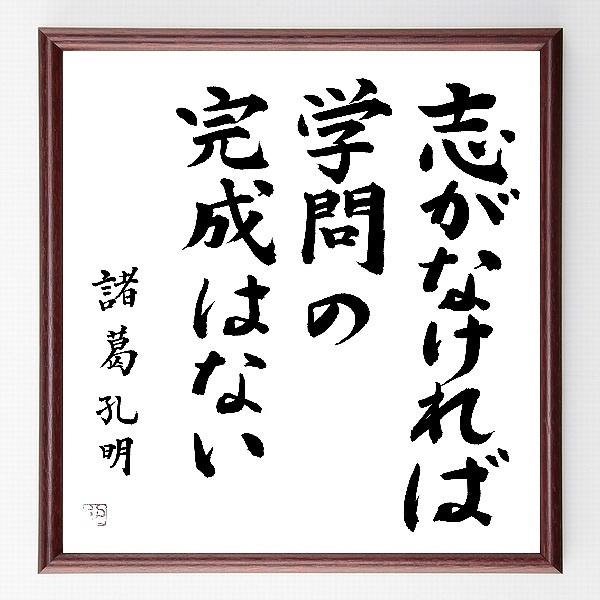 志がなければ
学問の
完成はない
諸葛孔明